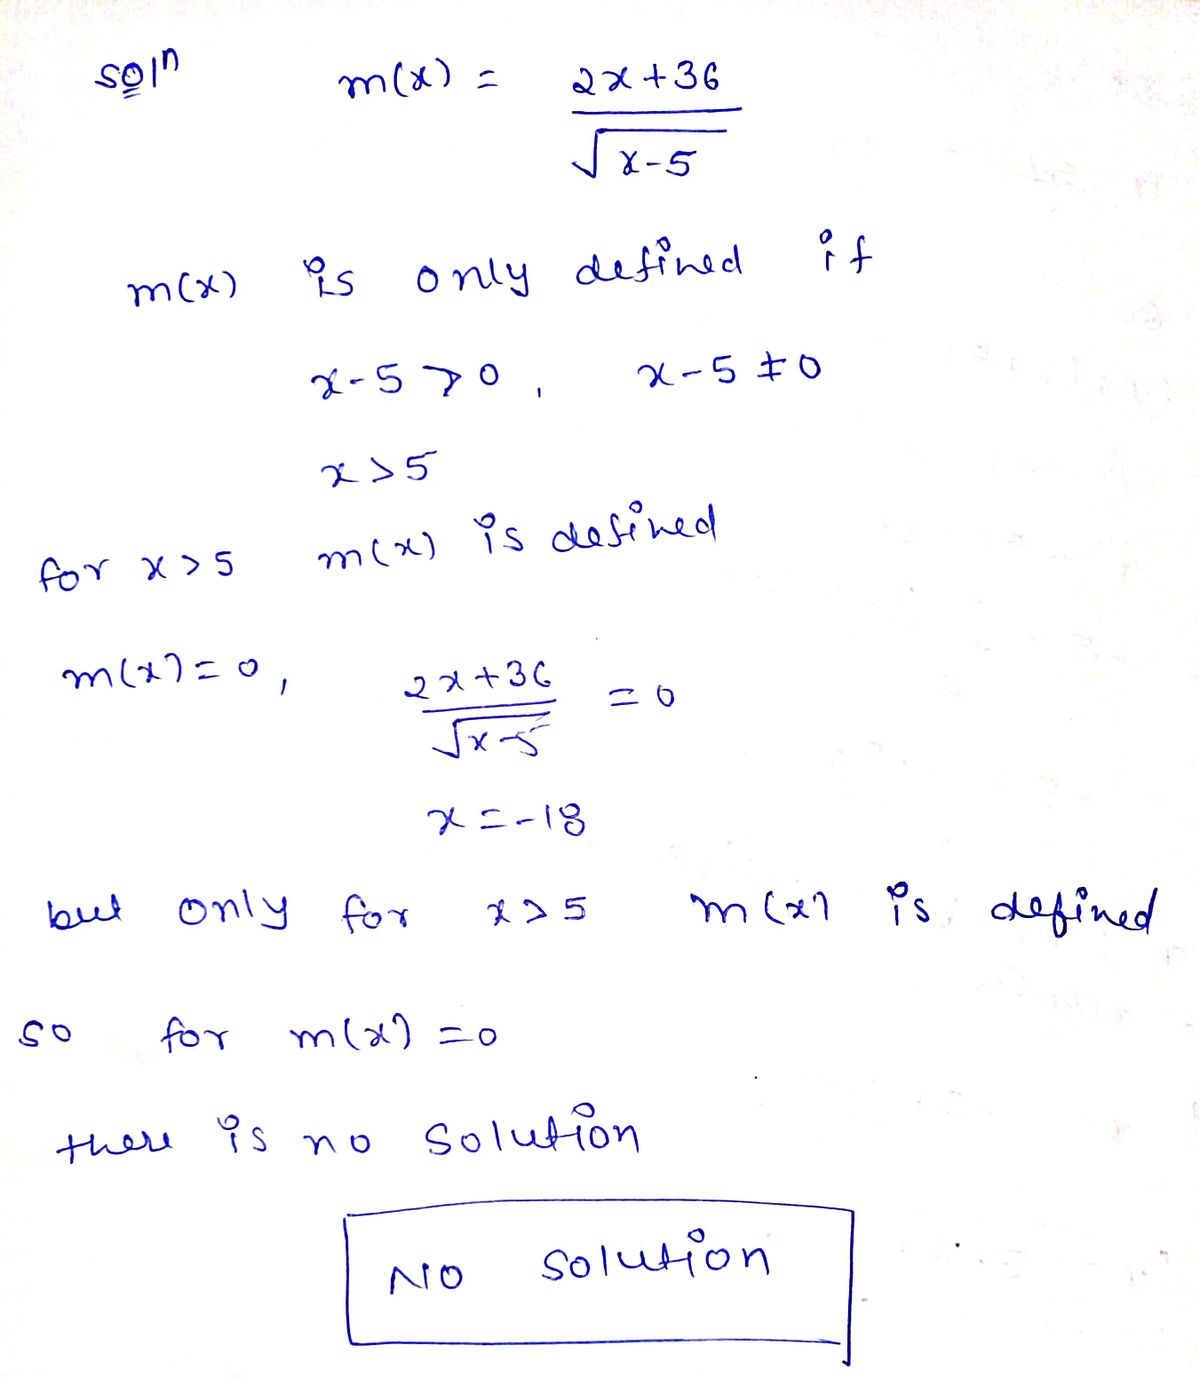 soln m(x) = 2x+36
√x-5
m(x) is only defined if
x-5 > 0 , x-5 ≠ 0
x > 5
for x > 5 m(x) is defined
m(x) = 0, 2x+36 = 0
√x-5
x = -18
but only for x > 5 m(x) is defined
so for m(x) = 0
there is no solution
NO solution